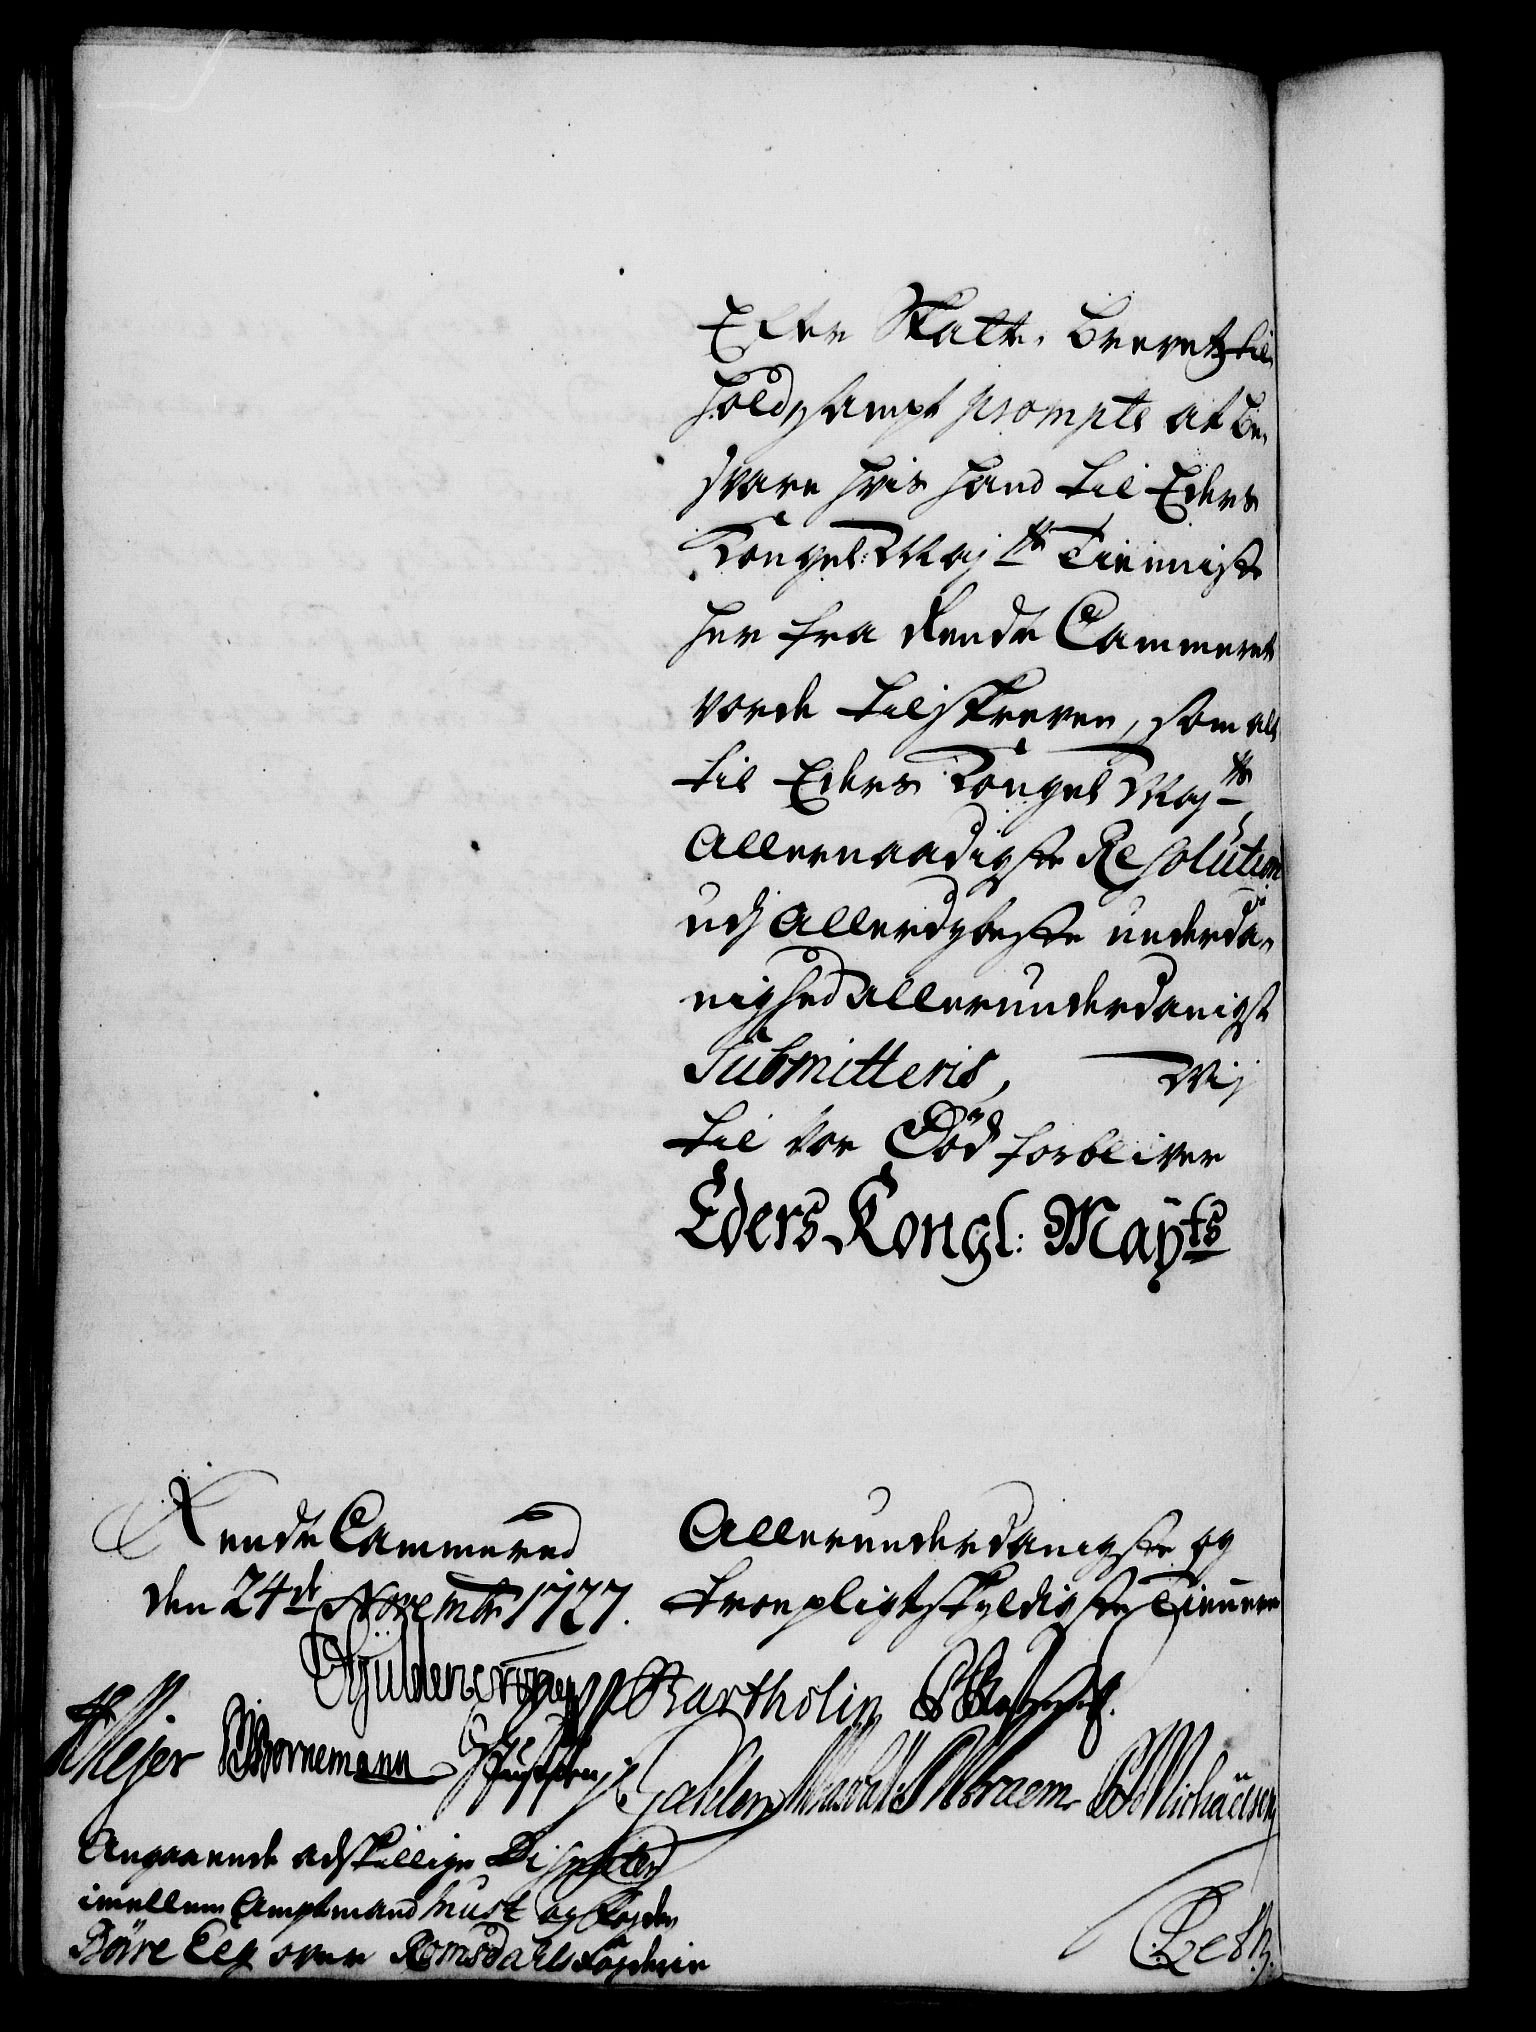 Efter Skatte-Brevetz til-
hold, samt prompte at be-
svare hvis hand til Eders
Kongel: Mayts Tienniste
her fra Rendte Cammeret
vorde tilskreven, som alt
til Eders Kongel Mayts
Allernaadigste Resolution
udj Allerdybeste underda-
nighed allerunderdanigst
Submitteris, Wij
til vor Död forbliver
Eders Kongl: Mayts
Rendte Cammered
den 24de Novembr 1727.
Allerunderdanigste og
troepligtskyldigste Tienere
Güldencrone Bartholin
Mejer Bornemann Braem Michaelsen
Angaaende adskillige Disputer
imellem Amptmand Must og Fogden
Böire Elg over Romsdahls Fogderie